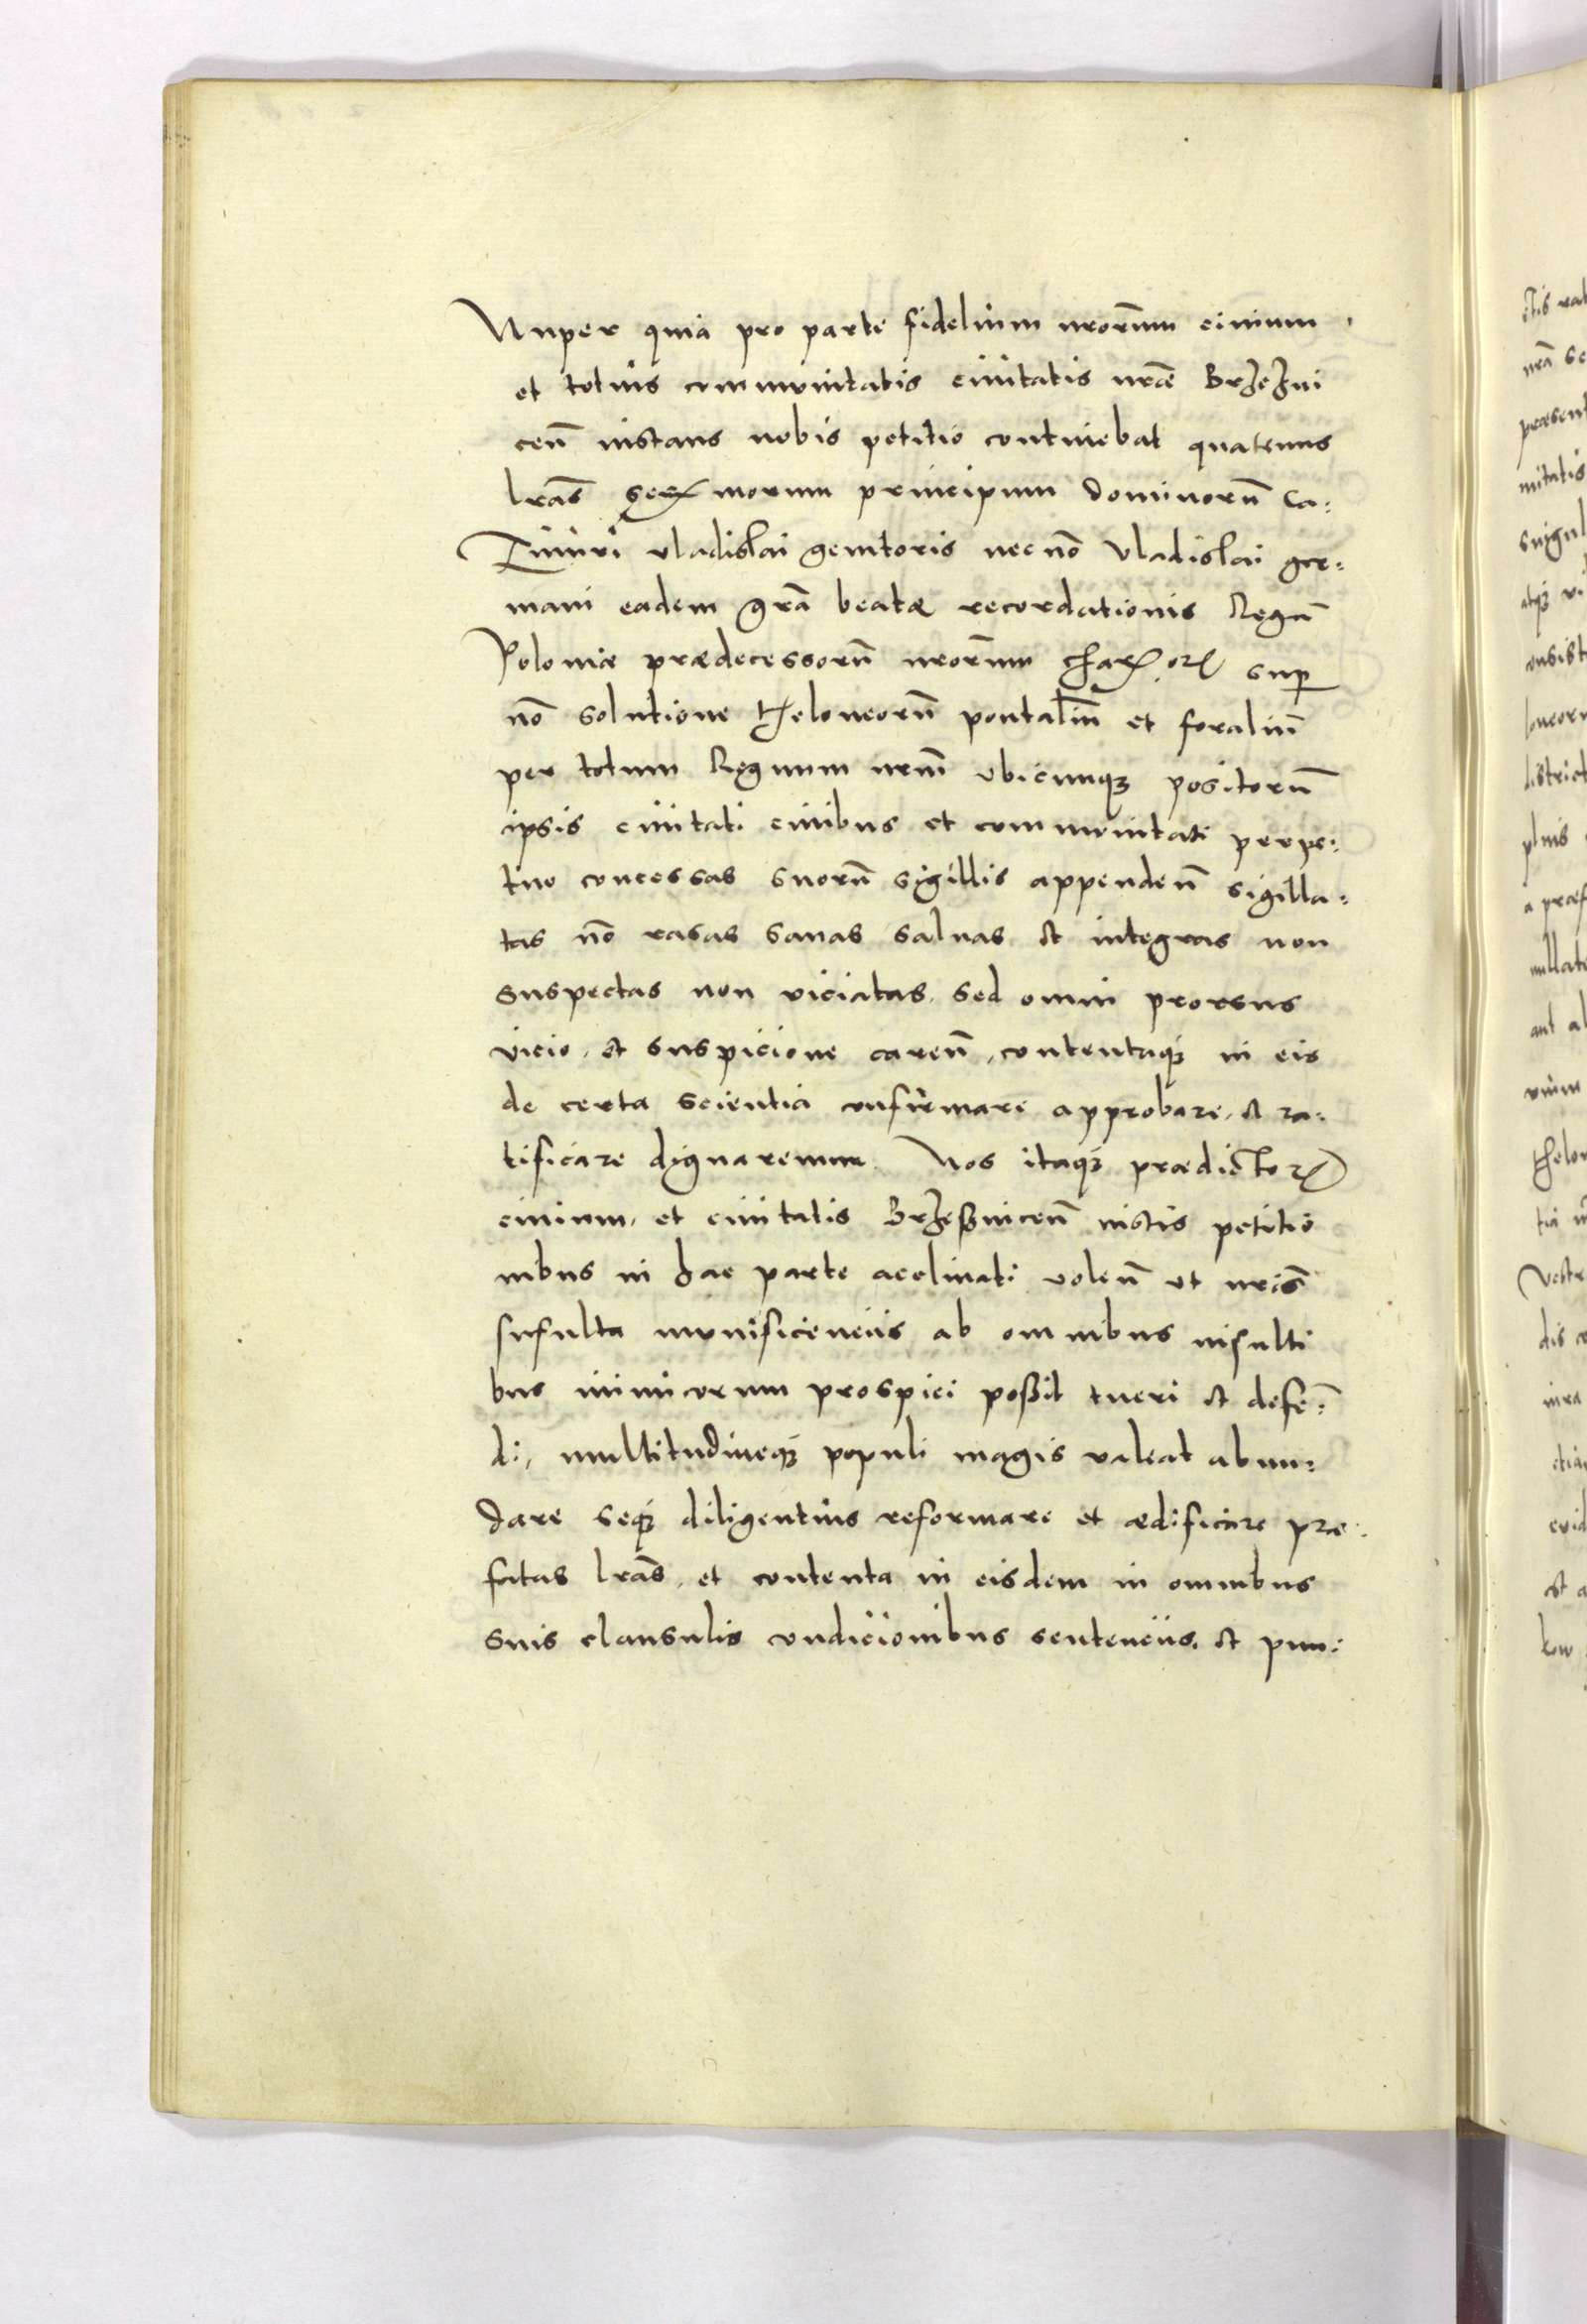 Nuper quia pro parte fidelium nrorum civium
et totius communitatis civitatis nrae Brzezni
cen̄ instans nobis petitio continebat quatenus
lrās Serꝫmorum principum dominorū Ca:
Zimiri Vladislai genitoris necnō Vladislai ger:
mani eadem grā beatæ recordationis Regū
Poloniæ prædecessorū nrōrum charꝫorꝫ sup
nō solutione theloneorū pontaliū et foraliū
per totum Regnum nrm̄ ubicunqꝫ positorū
ipsis civitati civibus et communitati perpe:
tuo concessas suorū sigillis appenden̄ sigilla:
tas nō rasas sanas salvas et integras non
suspectas non viciatas sed omni prorsus
vicio, et suspicione caren̄, contentaqꝫ in eis
de certa scientia confirmare approbare, et ra:
tificare dignaremur. Nos itaqꝫ prædictorꝫ
civium, et civitatis Brzeßnicen̄ instis petitio
nibus in hac parte acclinati volen̄ ut nrīs
sufulta munificenciis ab omnibus insulti
bus inimicorum prospici poßit tueri et defē:
di, multitudineqꝫ populi magis valeat abun:
dare seqꝫ diligentius reformare et ædificare præ:
fatas lrās, et contenta in eisdem in omnibus
suis clausulis condicionibus sentenciis, et pun: